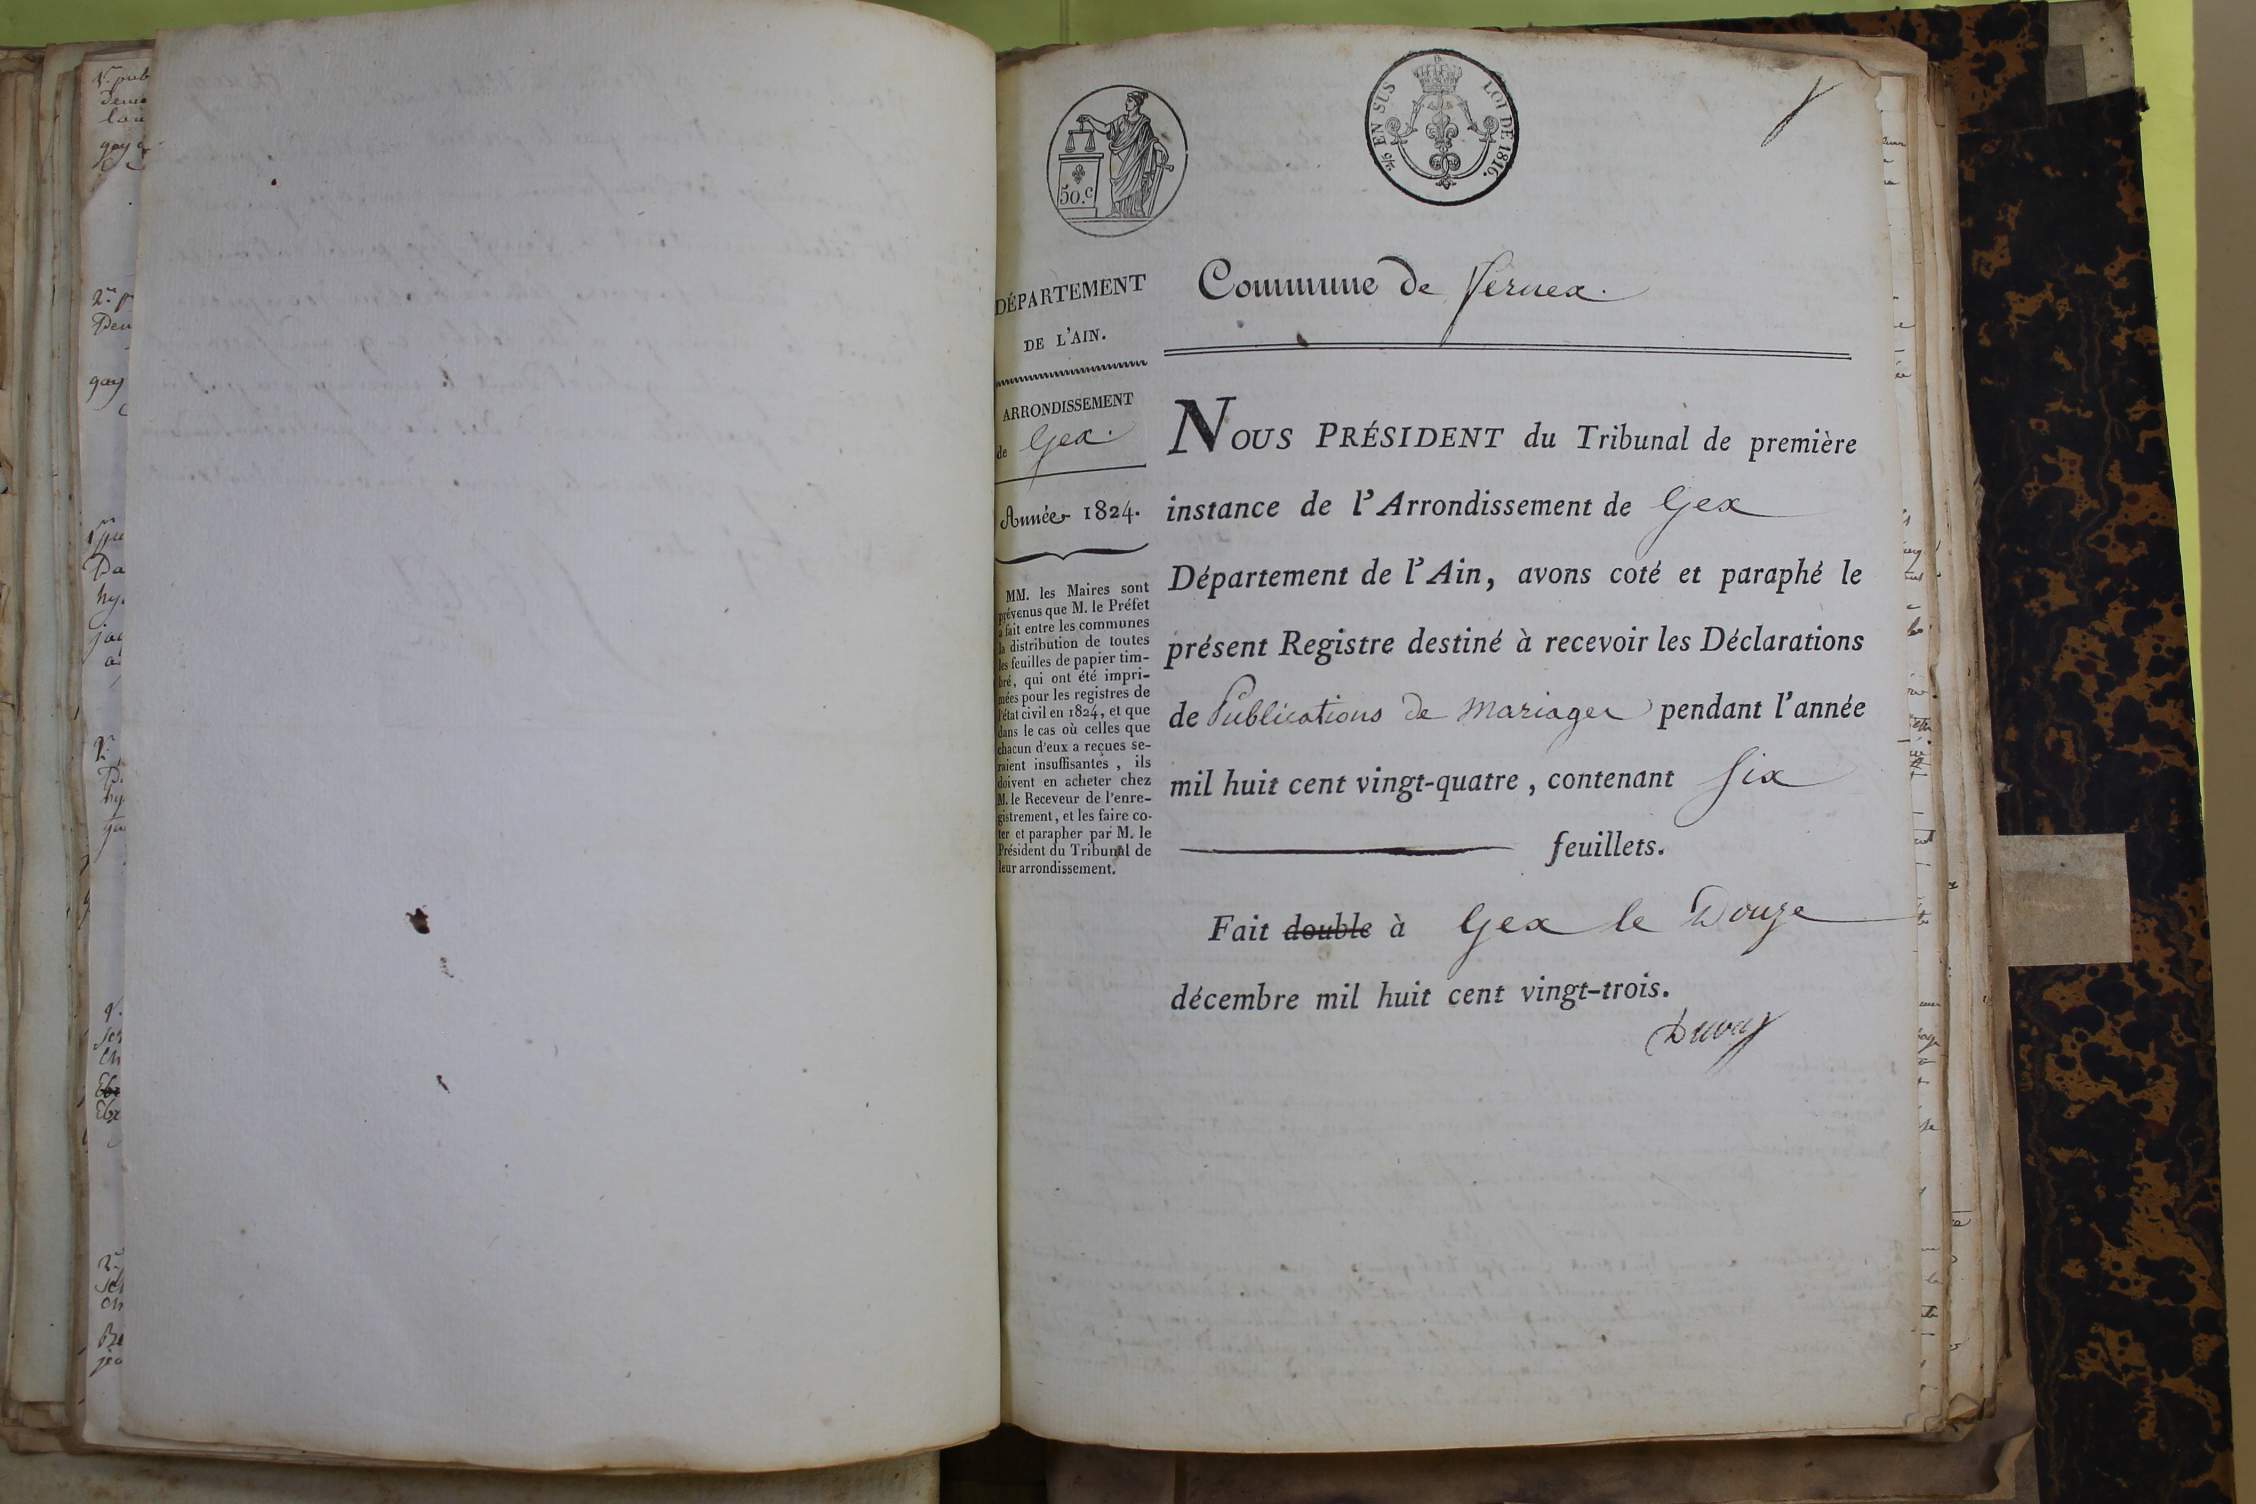 50.c
EN SUS
LOI DE 1816.
DÉPARTEMENT
DE L'AIN.
ARRONDISSEMENT
de Gex.
Année 1824.
MM. les Maires sont
prévenus que M. le Préfet
a fait entre les communes
la distribution de toutes
les feuilles de papier tim-
bré, qui ont été impri-
mées pour les registres de
l'état civil en 1824, et que
dans le cas où celles que
chacun d'eux a reçues se-
raient insuffisantes, ils
doivent en acheter chez
M. le Receveur de l'enre-
gistrement, et les faire co-
ter et parapher par M. le
Président du Tribunal de
leur arrondissement.
Commune de Fernex.
NOUS PRÉSIDENT du Tribunal de première
instance de l'Arrondissement de Gex
Département de l'Ain, avons coté et paraphé le
présent Registre destiné à recevoir les Déclarations
de Publications de Mariages pendant l'année
mil huit cent vingt-quatre, contenant Six
feuillets.
Fait double à Gex le Douze
décembre mil huit cent vingt-trois.